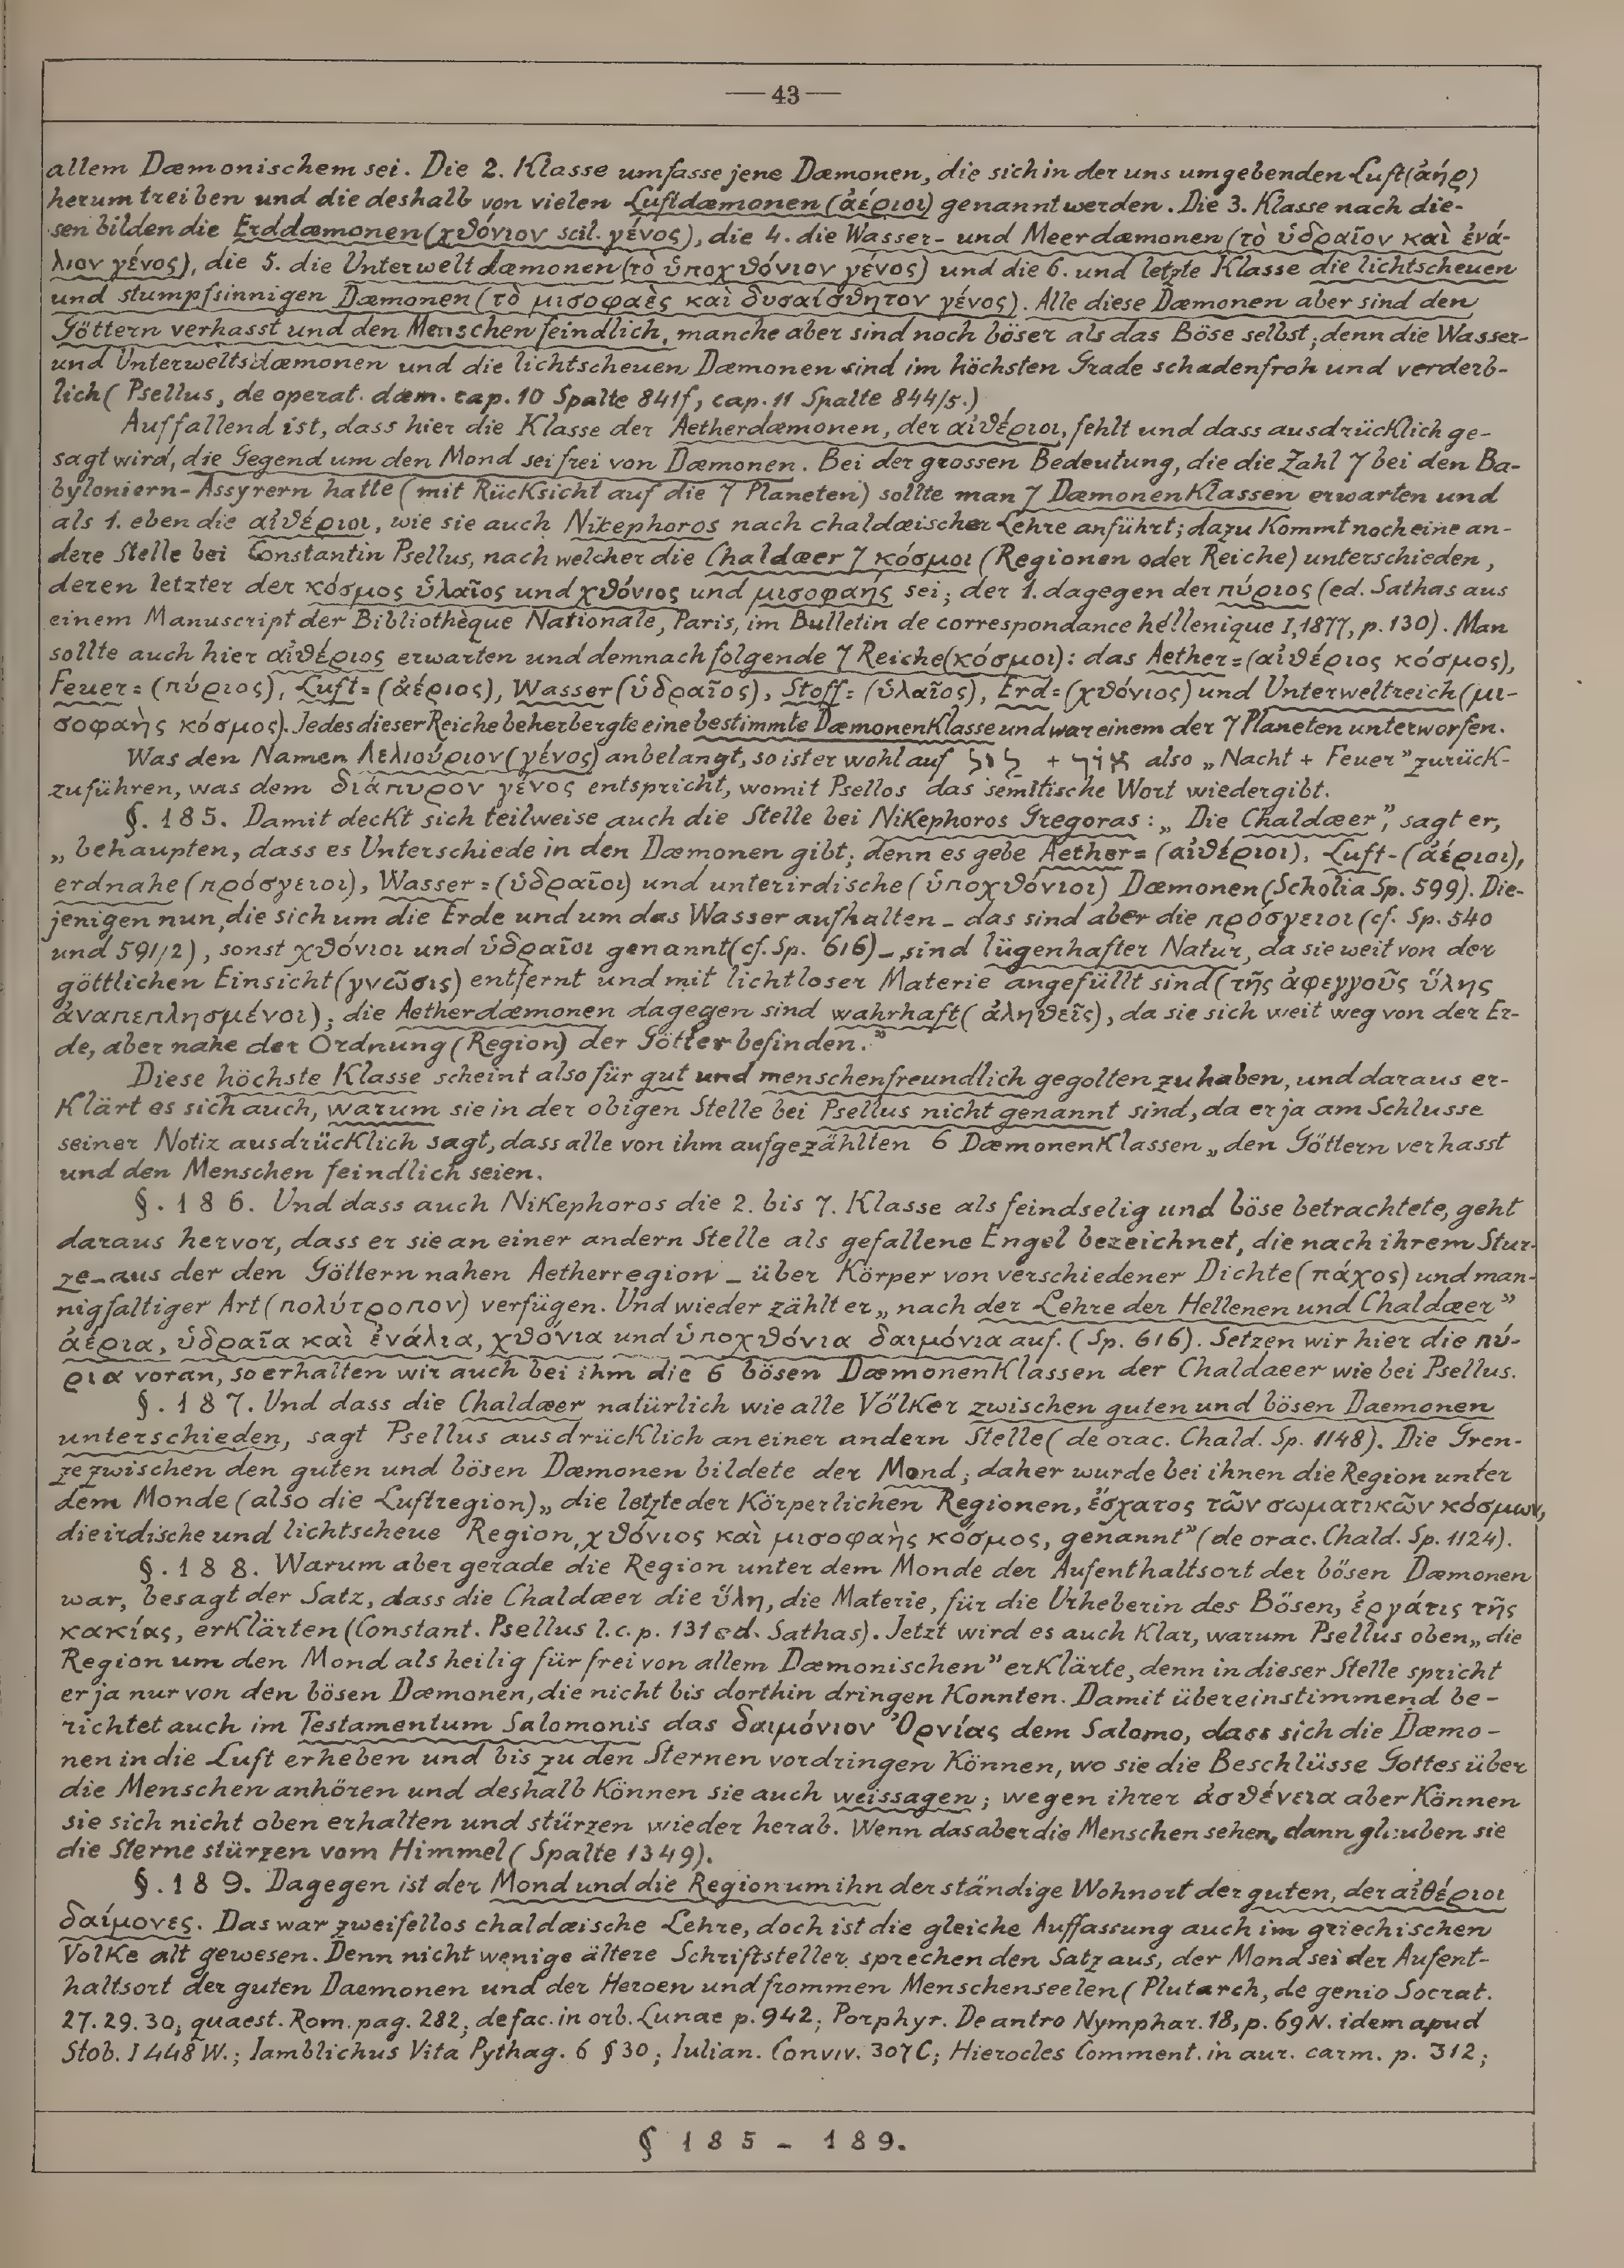 — 43 —
allem Dæmonischem sei. Die 2. Klasse umfasse jene Dæmonen, die sich in der uns umgebenden Luft (ἀήρ)
herumtreiben und die deshalb von vielen Luftdæmonen (ἀέριοι) genannt werden. Die 3. Klasse nach die-
sen bilden die Erddæmonen (χθόνιον scil. γένος), die 4. die Wasser- und Meerdæmonen (τὸ ὑδραῖον καὶ ἐνά-
λιον γένος), die 5. die Unterweltdæmonen (τὸ ὑποχθόνιον γένος) und die 6. und letzte Klasse die lichtscheuen
und stumpfsinnigen Dæmonen (τὸ μισοφαὲς καὶ δυσαίσθητον γένος). Alle diese Dæmonen aber sind den
Göttern verhasst und den Menschen feindlich, manche aber sind noch böser als das Böse selbst; denn die Wasser-
und Unterweltsdæmonen und die lichtscheuen Dæmonen sind im höchsten Grade schadenfroh und verderb-
lich (Psellus, de operat. dæm. cap. 10 Spalte 841f, cap. 11 Spalte 844/5.)
Auffallend ist, dass hier die Klasse der Aetherdæmonen, der αἰθέριοι, fehlt und dass ausdrücklich ge-
sagt wird, die Gegend um den Mond sei frei von Dæmonen. Bei der grossen Bedeutung, die die Zahl 7 bei den Ba-
byloniern-Assyrern hatte (mit Rücksicht auf die 7 Planeten) sollte man 7 Dæmonenklassen erwarten und
als 1. eben die αἰθέριοι, wie sie auch Nikephoros nach chaldæischer Lehre anführt; dazu kommt noch eine an-
dere Stelle bei Constantin Psellus, nach welcher die Chaldæer 7 κόσμοι (Regionen oder Reiche) unterschieden,
deren letzter der κόσμος ὑλαῖος und χθόνιος und μισοφαής sei; der 1. dagegen der πύριος (ed. Sathas aus
einem Manuscript der Bibliothèque Nationale, Paris, im Bulletin de correspondance héllenique I, 1877, p. 130). Man
sollte auch hier αἰθέριος erwarten und demnach folgende 7 Reiche (κόσμοι): das Aether= (αἰθέριος κόσμος),
Feuer= (πύριος), Luft= (ἀέριος), Wasser (ὑδραῖος), Stoff= (ὑλαῖος), Erd= (χθόνιος) und Unterweltreich (μι-
σοφαὴς κόσμος). Jedes dieser Reiche beherbergte eine bestimmte Dæmonenklasse und war einem der 7 Planeten unterworfen.
Was den Namen Λελιούριον (γένος) anbelangt, so ist er wohl auf + also „Nacht + Feuer” zurück-
zuführen, was dem διάπυρον γένος entspricht, womit Psellos das semitische Wort wiedergibt.
§. 185. Damit deckt sich teilweise auch die Stelle bei Nikephoros Gregoras: „Die Chaldæer”, sagt er,
„behaupten, dass es Unterschiede in den Dæmonen gibt; denn es gebe Aether= (αἰθέριοι), Luft- (ἀέριοι),
erdnahe (πρόσγειοι), Wasser= (ὑδραῖοι) und unterirdische (ὑποχθόνιοι) Dæmonen (Scholia Sp. 599). Die-
jenigen nun, die sich um die Erde und um das Wasser aufhalten – das sind aber die πρόσγειοι (cf. Sp. 540
und 591/2), sonst χθόνιοι und ὑδραῖοι genannt (cf. Sp. 616) – sind lügenhafter Natur, da sie weit von der
göttlichen Einsicht (γνῶσις) entfernt und mit lichtloser Materie angefüllt sind (τῆς ἀφεγγοῦς ὕλης
ἀναπεπλησμένοι); die Aetherdæmonen dagegen sind wahrhaft (ἀληθεῖς), da sie sich weit weg von der Er-
de, aber nahe der Ordnung (Region) der Götter befinden.”
Diese höchste Klasse scheint also für gut und menschenfreundlich gegolten zu haben, und daraus er-
klärt es sich auch, warum sie in der obigen Stelle bei Psellus nicht genannt sind, da er ja am Schlusse
seiner Notiz ausdrücklich sagt, dass alle von ihm aufgezählten 6 Dæmonenklassen „den Göttern verhasst
und den Menschen feindlich seien.
§. 186. Und dass auch Nikephoros die 2. bis 7. Klasse als feindselig und böse betrachtete, geht
daraus hervor, dass er sie an einer andern Stelle als gefallene Engel bezeichnet, die nach ihrem Stur-
ze – aus der den Göttern nahen Aetherregion – über Körper von verschiedener Dichte (πάχος) und man-
nigfaltiger Art (πολύτροπον) verfügen. Und wieder zählt er „nach der Lehre der Hellenen und Chaldæer”
ἀέρια, ὑδραῖα καὶ ἐνάλια, χθόνια und ὑποχθόνια δαιμόνια auf. (Sp. 616). Setzen wir hier die πύ-
ρια voran, so erhalten wir auch bei ihm die 6 bösen Dæmonenklassen der Chaldaeer wie bei Psellus.
§. 187. Und dass die Chaldæer natürlich wie alle Völker zwischen guten und bösen Daemonen
unterschieden, sagt Psellus ausdrücklich an einer andern Stelle (de orac. Chald. Sp. 1148). Die Gren-
ze zwischen den guten und bösen Dæmonen bildete der Mond; daher wurde bei ihnen die Region unter
dem Monde (also die Luftregion) „die letzte der körperlichen Regionen, ἔσχατος τῶν σωματικῶν κόσμων,
die irdische und lichtscheue Region, χθόνιος καὶ μισοφαὴς κόσμος, genannt” (de orac. Chald. Sp. 1124).
§. 188. Warum aber gerade die Region unter dem Monde der Aufenthaltsort der bösen Dæmonen
war, besagt der Satz, dass die Chaldæer die ὕλη, die Materie, für die Urheberin des Bösen, ἐργάτις τῆς
κακίας, erklärten (Constant. Psellus l. c. p. 131 ed. Sathas). Jetzt wird es auch klar, warum Psellus oben „die
Region um den Mond als heilig für frei von allem Dæmonischen” erklärte, denn in dieser Stelle spricht
er ja nur von den bösen Dæmonen, die nicht bis dorthin dringen konnten. Damit übereinstimmend be-
richtet auch im Testamentum Salomonis das δαιμόνιον Ὀρνίας dem Salomo, dass sich die Dæmo-
nen in die Luft erheben und bis zu den Sternen vordringen können, wo sie die Beschlüsse Gottes über
die Menschen anhören und deshalb können sie auch weissagen; wegen ihrer ἀσθένεια aber können
sie sich nicht oben erhalten und stürzen wieder herab. Wenn das aber die Menschen sehen, dann glauben sie
die Sterne stürzen vom Himmel (Spalte 1349).
§. 189. Dagegen ist der Mond und die Region um ihn der ständige Wohnort der guten, der αἰθέριοι
δαίμονες. Das war zweifellos chaldæische Lehre, doch ist die gleiche Auffassung auch im griechischen
Volke alt gewesen. Denn nicht wenige ältere Schriftsteller sprechen den Satz aus, der Mond sei der Aufent-
haltsort der guten Daemonen und der Heroen und frommen Menschenseelen (Plutarch, de genio Socrat.
27. 29. 30; quaest. Rom. pag. 282; de fac. in orb. Lunae p. 942; Porphyr. De antro Nymphar. 18, p. 69 N. idem apud
Stob. I 448 W.; Iamblichus Vita Pythag. 6 § 30; Iulian. Conviv. 307 C; Hierocles Comment. in aur. carm. p. 312;
§ 185 – 189.